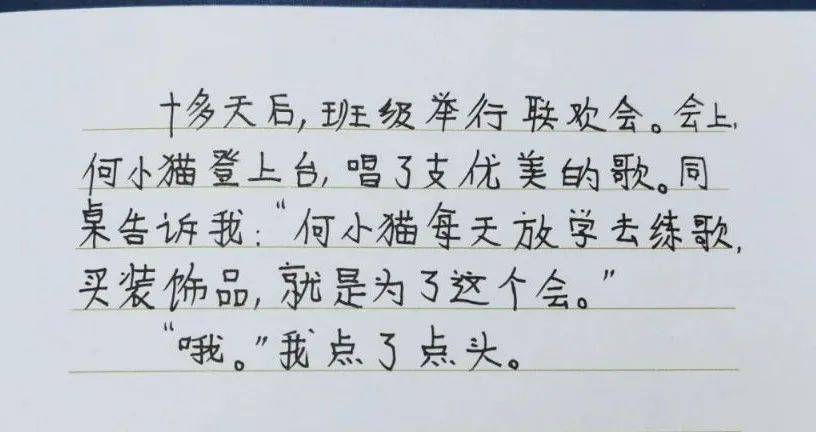 十多天后,班级举行联欢会。会上,
何小猫登上台,唱了支优美的歌。同
桌告诉我:“何小猫每天放学去练歌,
买装饰品,就是为了这个会。”
“哦。”我点了点头。